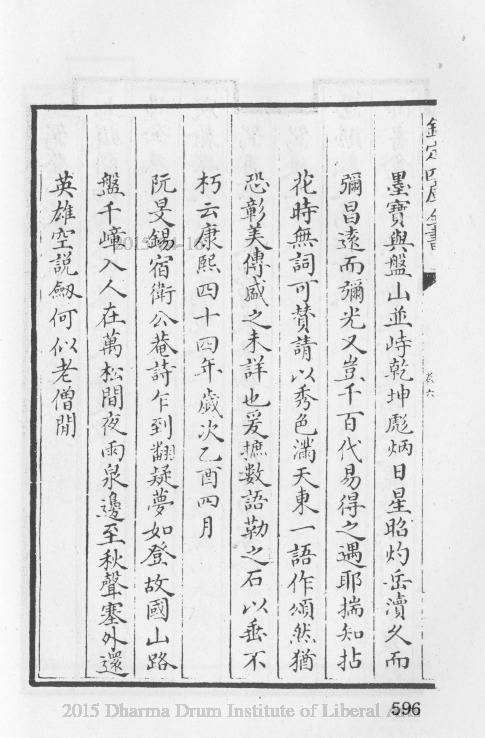 欽定四庫全書
卷六
墨寶與盤山並峙乾坤彪炳日星昭灼岳瀆久而
彌昌遠而彌光又豈千百代易得之遇耶揣知拈
花時無詞可贊請以秀色滿天東一語作頌然猶
恐彰美傳盛之未詳也爰摭數語勒之石以垂不
朽云康熙四十四年歲次乙酉四月
阮旻錫宿衛公菴詩乍到翻疑夢如登故國山路
盤千嶂入人在萬松間夜雨泉邊至秋聲塞外還
英雄空説劒何似老僧閒
596
2015 Dharma Drum Institute of Liberal Arts